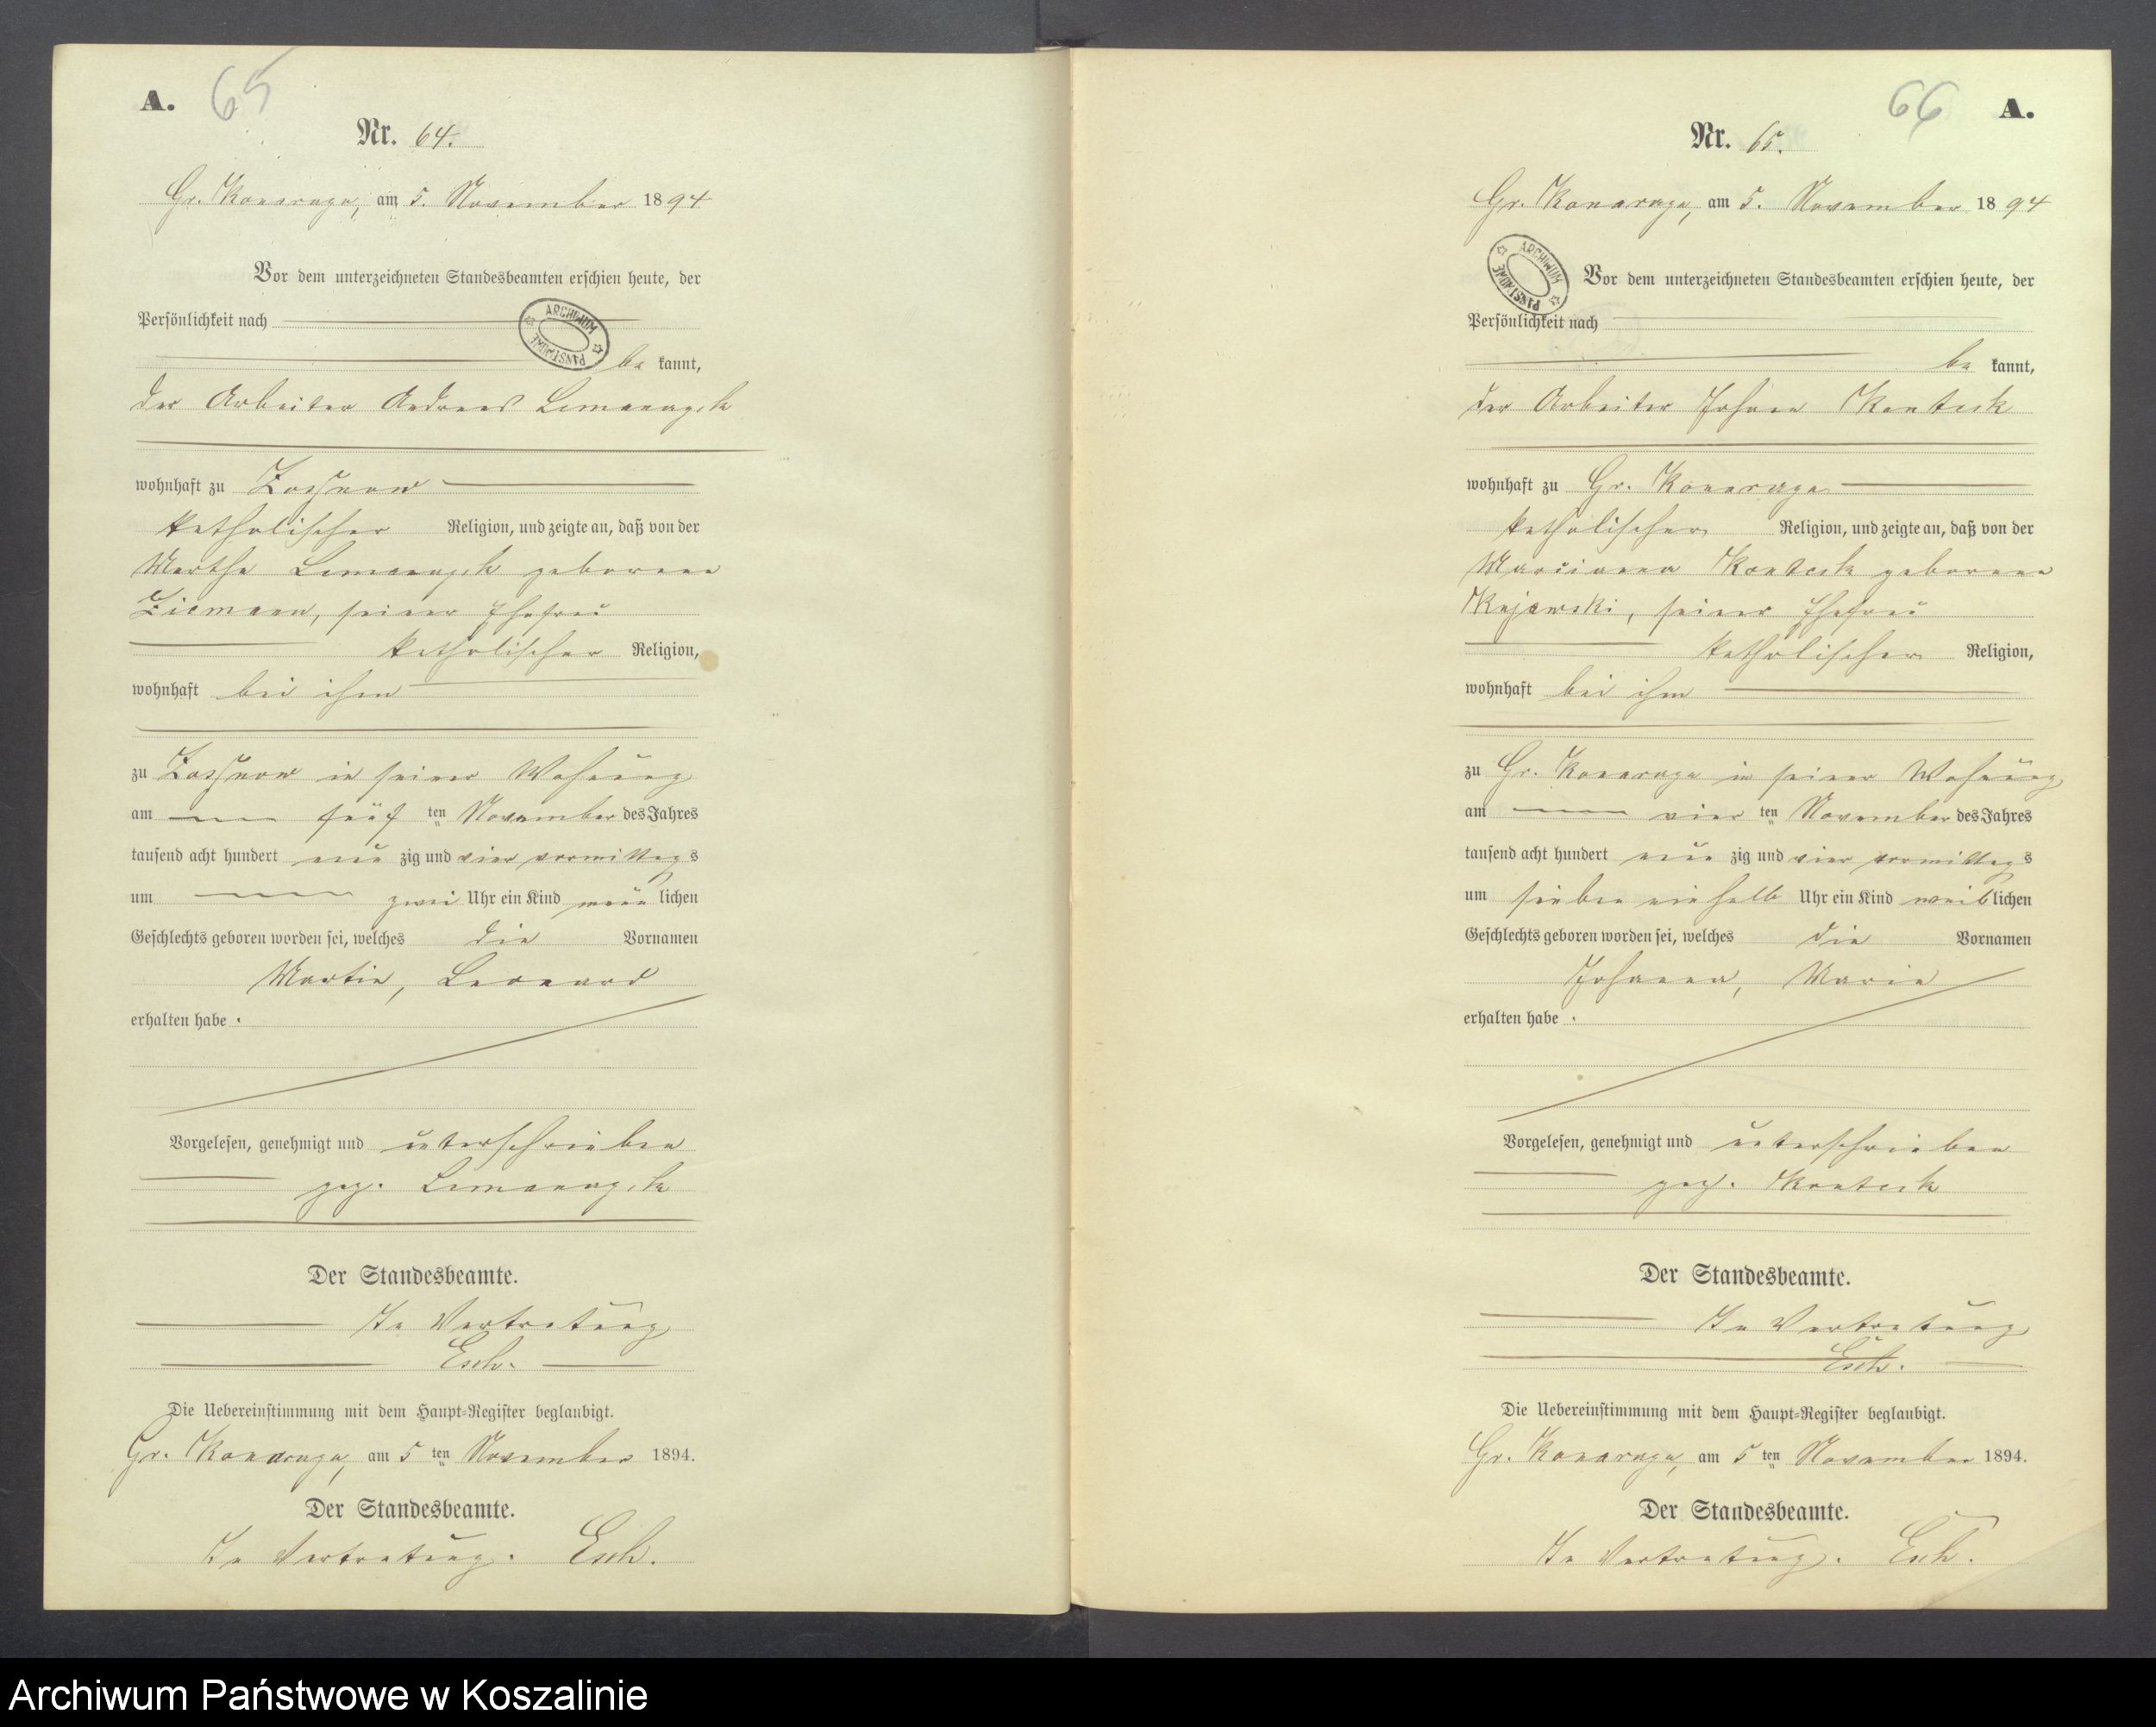 A.
65
Nr. 64.
Gr. Konarzyn, am 5. November 1894
Vor dem unterzeichneten Standesbeamten erschien heute, der
Persönlichkeit nach
ARCHIWUM PAŃSTWOWE
be kannt,
der Arbeiter Andreas
wohnhaft zu
katholischer Religion, und zeigte an, daß von der
Martha geborene
Ziemann, seiner Ehefrau
katholischer Religion,
wohnhaft bei ihm
zu in seiner Wohnung
am fünf ten November des Jahres
tausend acht hundert neun zig und vier vormittags
um zwei Uhr ein Kind männ lichen
Geschlechts geboren worden sei, welches die Vornamen
Martin, Leonard
erhalten habe.
Vorgelesen, genehmigt und unterschrieben
gez.
Der Standesbeamte.
In Vertretung
Esch.
Die Uebereinstimmung mit dem Haupt-Register beglaubigt.
Gr. Konarzyn, am 5 ten November 1894.
Der Standesbeamte.
In Vertretung. Esch.
66
A.
Nr. 65.
Gr. Konarzyn, am 5. November 1894
ARCHIWUM PAŃSTWOWE
Vor dem unterzeichneten Standesbeamten erschien heute, der
Persönlichkeit nach
be kannt,
der Arbeiter Johann Kontek
wohnhaft zu Gr. Konarzyn
katholischer Religion, und zeigte an, daß von der
Marianna Kontek geborene
Kujawski, seiner Ehefrau
katholischer Religion,
wohnhaft bei ihm
zu Gr. Konarzyn in seiner Wohnung
am vier ten November des Jahres
tausend acht hundert neun zig und vier vormittags
um sieben einhalb Uhr ein Kind weib lichen
Geschlechts geboren worden sei, welches die Vornamen
Johanna, Maria
erhalten habe.
Vorgelesen, genehmigt und unterschrieben
gez. Kontek
Der Standesbeamte.
In Vertretung
Esch.
Die Uebereinstimmung mit dem Haupt-Register beglaubigt.
Gr. Konarzyn, am 5 ten November 1894.
Der Standesbeamte.
In Vertretung. Esch.
Archiwum Państwowe w Koszalinie